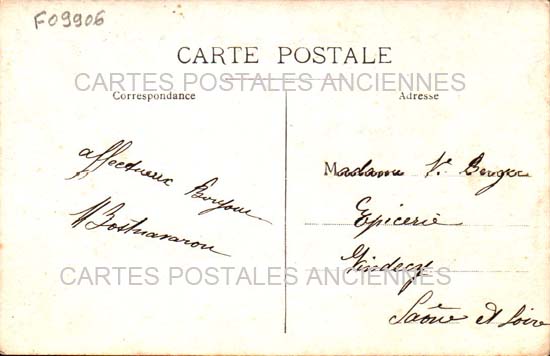 F09906
CARTE POSTALE
CARTES POSTALES ANCIENNES
Correspondance
Adresse
affectueux Bonjour
Madame Vve Berger
Epicerie
Saône et Loire
CARTES POSTALES ANCIENNES